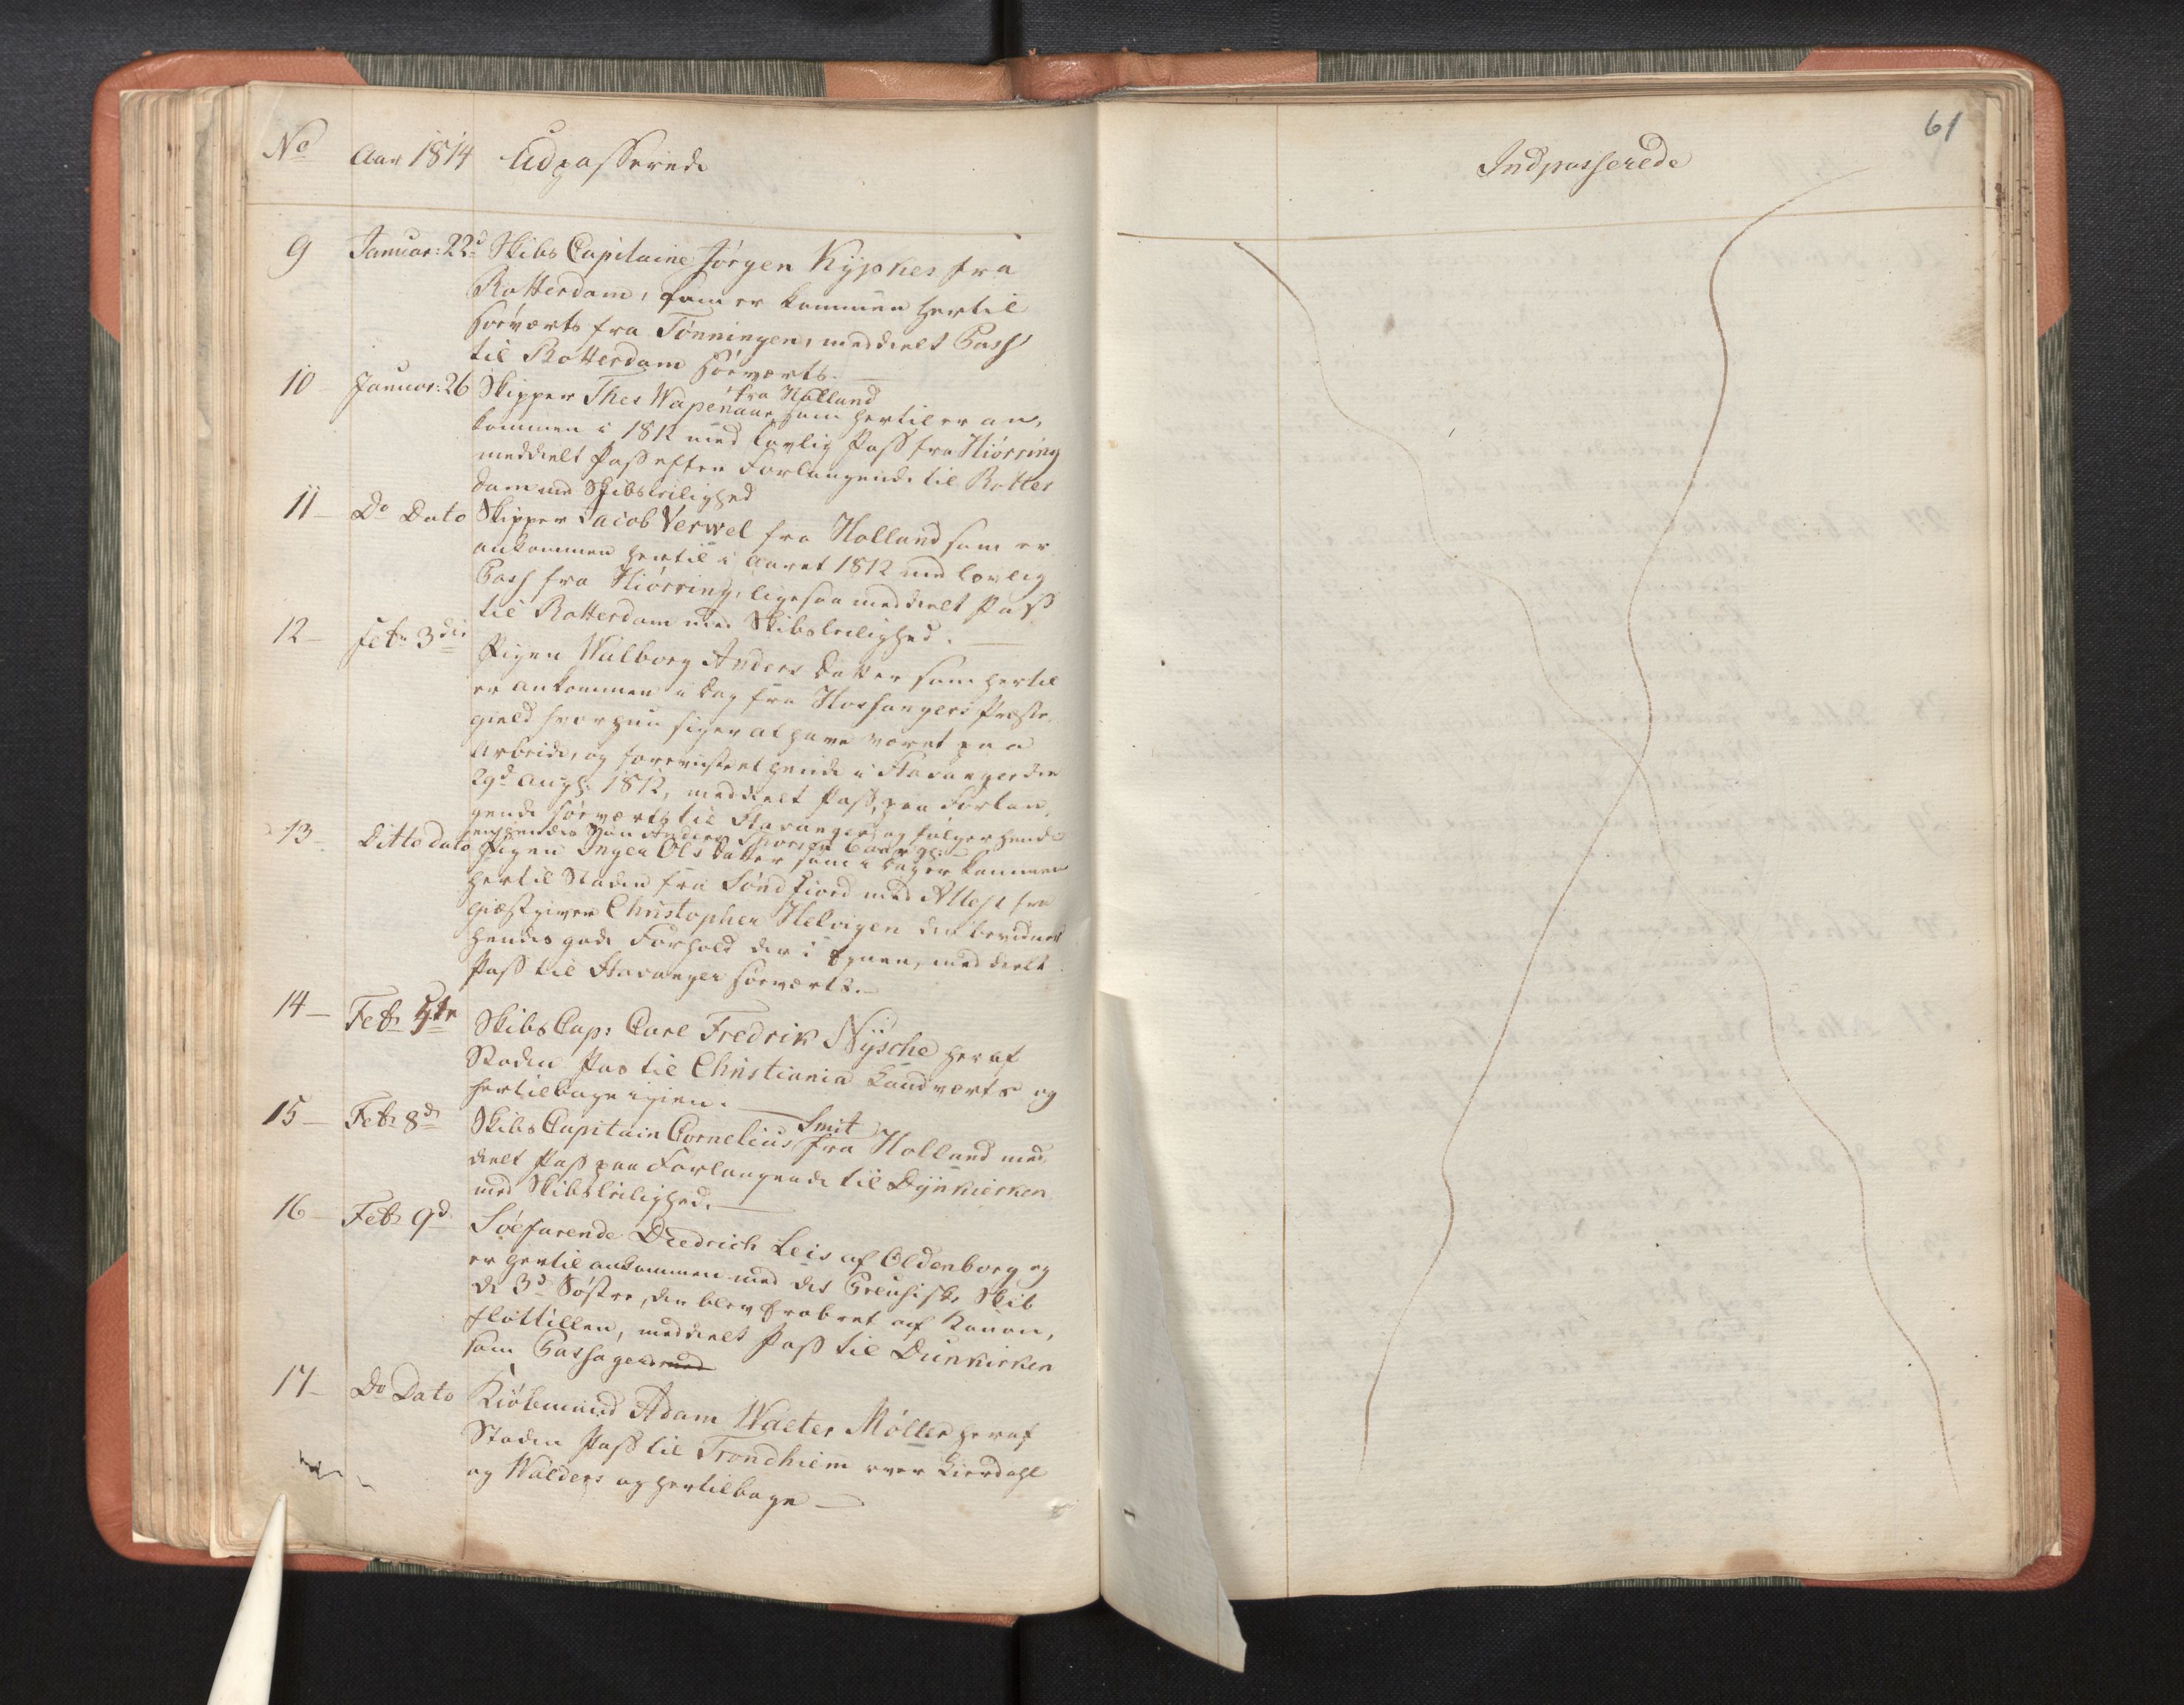 No Aar 1814 Udpasserede
9 Januar: 22d Skibs Capitaine Jörgen Kÿpkes fra
Rotterdam, som er kommen hertil
söeværts fra Tönningen, meddeelt Pass
til Rotterdam söeværts.
10 Januar: 26 Skipper Thes Wapenaar fra Holland som hertil er an,
kommen i 1812 med lovlig Pass fra Hiörring
meddeelt Pass efter Forlangende til Rotter
dam med Skibsleilighed
11 Do Dato Skipper Jacob Verwel fra Holland som er
ankommen hertil i Aaret 1812 med lovlig
Pass fra Hiörring, ligesaa meddeelt Pass
til Rotterdam med Skibsleilighed.
12 Febr 3die Pigen Walborg Anders Datter som hertil
er ankommen i Dag fra Hosangers Præste,
gield hvor hun siger at have været paa
Arbeide, og forevist et hende i Stavanger den
29d Augs: 1812, meddeelt Pass, paa Forlan,
gende söeværts til Stavanger, og fölger hende
hendes Sön Anders 6 aar gl:
13 Ditto dato Pigen Inger Ols Datter som i Dag er kommen
hertil Staden fra Söndfiord med Attest fra
Giæstgiver Christopher Helvigen der bevidner
hendes gode Forhold der i Egnen, meddeelt
Pass til Stavanger söeværts.
14 Febr 5te Skibs Cap: Carl Fredrik Nÿsche her af
Staden Pas til Christiania Landværts og
hertilbage igien.
15 Febr 8de Skibs Capitain Cornelius Smit fra Holland med,
deelt Pass paa Forlangende til Dÿnkierken
med Skibsleilighed.
16 Febr 9d Söefarende Diedrich Leis af Oldenborg og
er hertil ankommen med det Preusiske Skib
de 3de Söstre, der blev erobret af Kanon,
flottillen, meddeelt Pass til Dunkirken
som Passager
17 Do Dato Kiöbmand Adam Walter Möller her af
Staden Pass til Trondhiem over Lierdahl
og Walders og hertilbage
61
Indpasserede